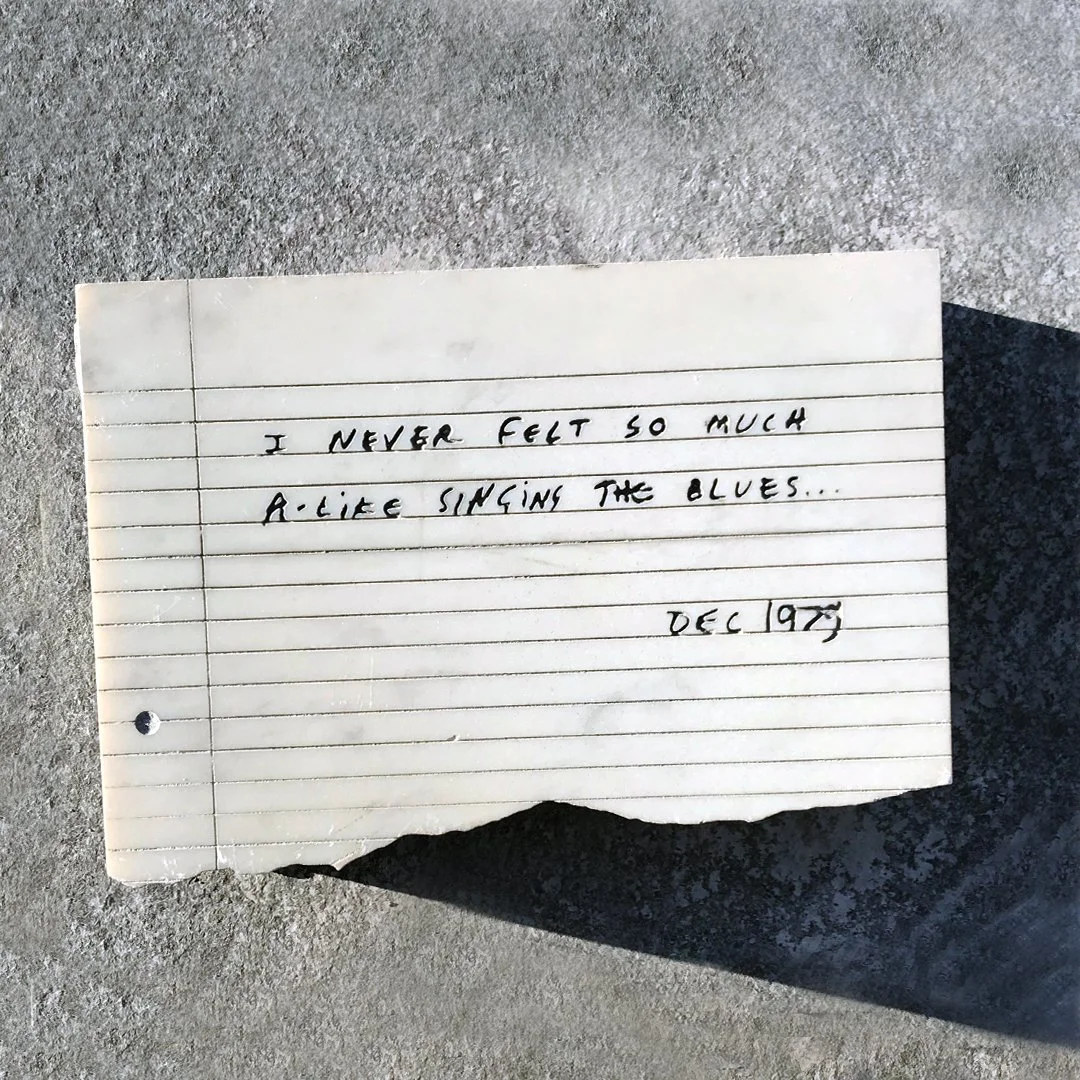 I NEVER FELT SO MUCH
A-LIKE SINGING THE BLUES...
DEC